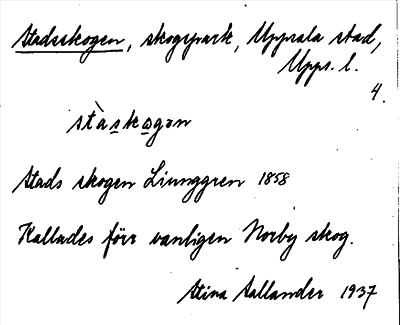 Stadsskogen, skogspark, Uppsala stad,
Upps. l.
4.
stàskωgən
Stads skogen Ljunggren 1858
Kallades förr vanligen Norby skog.
Stina Sallander 1937